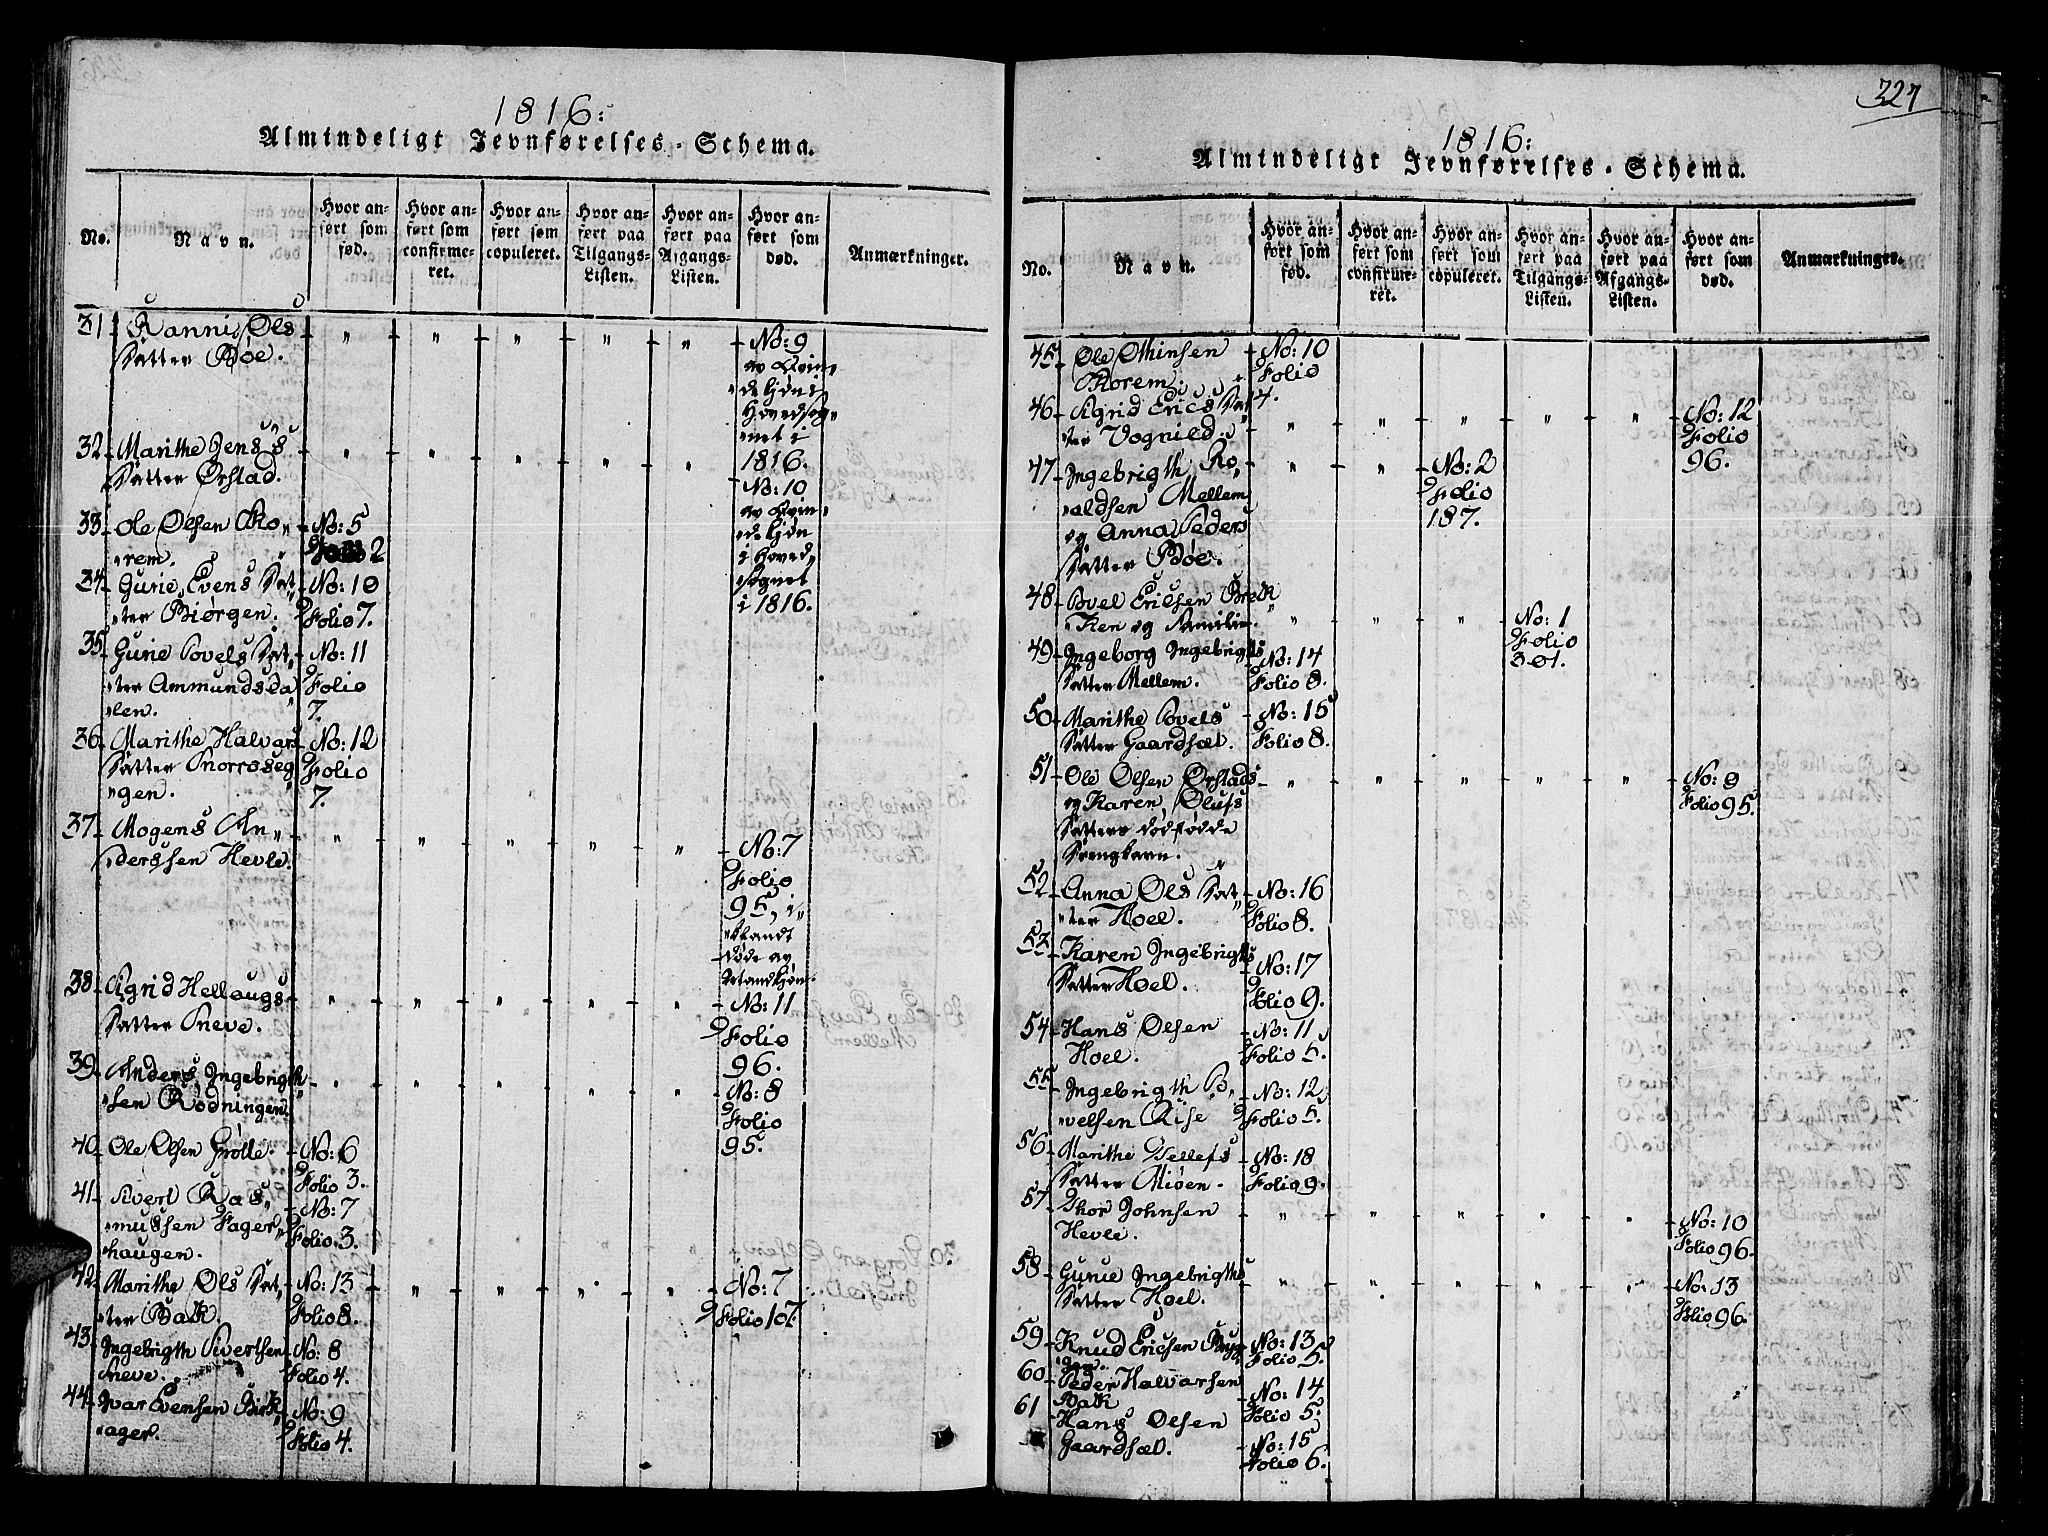 1816:
Almindeligt Jevnførelses-Schema.
No.
Navn.
Hvor an-
ført som
fød.
Hvor an-
ført som
confirme-
ret.
Hvor an-
ført som
copuleret.
Hvor an-
ført paa
Tilgangs-
Listen.
Hvor an-
ført paa
Afgangs-
Listen.
Hvor an-
ført som
død.
Anmærkninger.
31 Ranni Ols
Datter Bøe.
No: 9
av Qvin„
„dekjøns
Hovedsog„
„net i
1816.
32 Marithe Jens's
Datter Ørstad.
No: 10
av Qvin„
„dekjøn
i Hoved„
„sognet
i 1816.
33 Ole Olsen Sko„
„rem.
No: 5
Folio 2
34 Gurie Evens Dat„
„ter Biørgen.
No: 10
Folio 7.
35 Gurie Povels Dat„
„ter Ammundsda„
„len.
No: 11
Folio
7.
36 Marithe Halvors
Datter Snorroseg„
„gen.
No: 12
Folio
7.
37 Mogens An„
„derssen Hevle.
No: 7
Folio
95, i„
„blandt
døde av
Mandkjøn.
38 Sigrid Hellaugs
Datter Sneve.
No: 11
Folio
96.
39 Anders Ingebrigth„
„sen Rødningen.
No: 8
Folio
95.
40 Ole Olsen Grøtte.
No: 6
Folio 3.
41 Sivert Ras„
„mussen Fager„
„haugen.
No: 7
Folio 3.
42 Marithe Ols Dat„
„ter Bak.
No: 13
Folio 8.
No: 7
Folio 107.
43 Ingebrigth Sivertsen
Sneve.
No: 8
Folio 4.
44 Ivar Evensen Birk„
„ager.
No: 9
Folio 4.
327
1816:
Almindeligt Jevnførelses-Schema.
No.
Navn.
Hvor an-
ført som
fød.
Hvor an-
ført som
confirme-
ret.
Hvor an-
ført som
copuleret.
Hvor an-
ført paa
Tilgangs-
Listen.
Hvor an-
ført paa
Afgangs-
Listen.
Hvor an-
ført som
død.
Anmærkninger.
45 Ole Othinsen
Skorem.
No: 10
Folio
4.
46 Sigrid Erics Dat„
„ter Vognild.
No: 12
Folio
96.
47 Ingebrigth Ro„
„aldsen Mellem
og Anna Peders
Datter Bøe.
No: 2
Folio
187.
48 Povel Ericsen Brek„
„ken og Familie.
No: 1
Folio
301.
49 Ingeborg Ingebrigths
Datter Mellem.
No: 14
Folio 8.
50 Marithe Povels
Datter Gaardsæt.
No: 15
Folio 8.
51 Ole Olsen Ørstads
og Karen Olufs
Datters dødfødde
Drengbarn.
No: 9
Folio 95.
52 Anna Ols Dat„
„ter Hoel.
No: 16
Folio 8.
53 Karen Ingebrigths
Datter Hoel.
No: 17
Folio 9.
54 Hans Olsen
Hoel.
No: 11
Folio 5.
55 Ingebrigth Po„
„velsen Rise
No: 12
Folio 5.
56 Marithe Dellefs
Datter Miøen.
No: 18
Folio 9.
57 Thor Johnsen
Hevle.
No: 10
Folio 96.
58 Gurie Ingebrigths
Datter Hoel.
No: 13
Folio 96.
59 Knud Ericsen Rug„
„gen.
No: 13
Folio 5.
60 Peder Halvorsen
Bak
No: 14
Folio 5.
61 Hans Olsen
Gaardsæt.
No: 15
Folio 6.